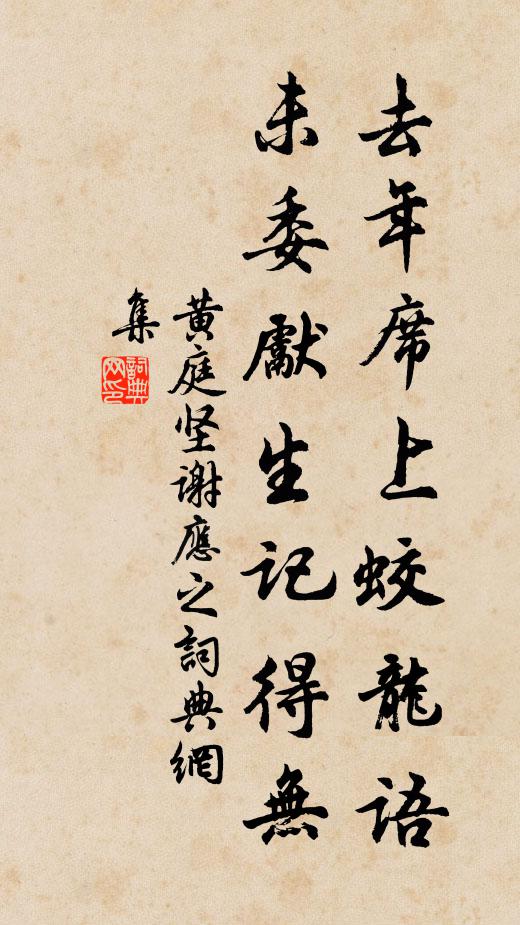 去年席上蛟龍語
未委獻生記得無
黄庭坚谢應之詞典網
集
詞典網印